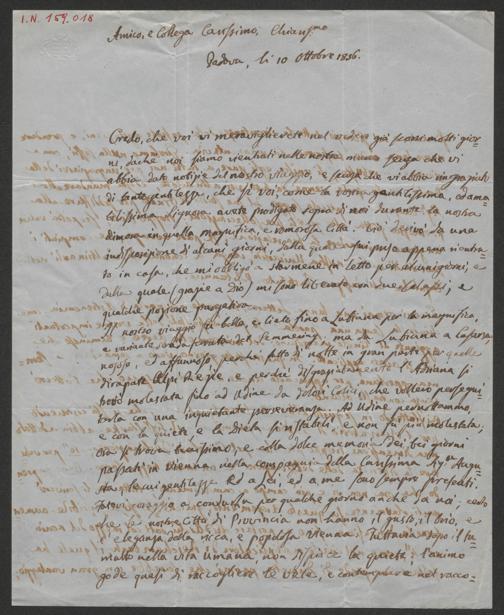 I.N. 159.018
Amico, e Collega Carissimo, Chiarissmo
Padova, li 10 Ottobre 1856.
Credo, che voi vi meraviglierete nel veder già scorsi molti gior-
ni, dachè noi siamo rientrati nelle nostre mura senza che vi
abbia dato notizie del nostro viaggio, e senza che vi abbia ringraziati
di tante gentilezze, che sì voi, come la vostra gentilissima, ed ama-
bilissima Signora avete prodigate sopra di noi durante la nostra
dimora in quella magnifica, e romorosa Città. Ciò derivò da una
indisposizione di alcuni giorni, dalla quale fui preso appena rientra-
to in casa, che mi obbligò a starmene in letto per alcuni giorni, e
dalla quale (grazie a Dio) mi sono liberato con due salassi, e
qualche pozione purgativa.
Il nostro viaggio fu bello, e lieto fino a Lubiana per la magnifica,
e variata strada ferrata del Semmering, ma da Lubiana a Casarsa
nojoso, ed affannoso, perchè fatto di notte in gran parte per quelle
dirupate Alpi Giulie, e perchè disgraziatamente l'Adriana si
trovò molestata fino ad Udine da dolori colici, che vollero persegui-
tarla con una inquietante perseveranza. Ad Udine pernottammo,
e con la quiete, e la dieta si ristabilì, e non fu più molestata.
Ora si trova benissimo, e colla dolce memoria dei bei giorni
passati in Vienna nella compagnia della Carissima Sigra Augu-
sta, le cui gentilezze ed a Lei, ed a me sono sempre presenti.
Potrò averla e condurla per qualche giorni anche da noi; certo
che le nostre Città di Provincia non hanno il gusto, il brio, e
l'eleganza della ricca, e popolosa Vienna. Tuttavia dopo il tu-
multo nella vita umana, non dispiace la quiete; l'animo
gode quasi di raccogliere le vele, e contemplare nel racco-